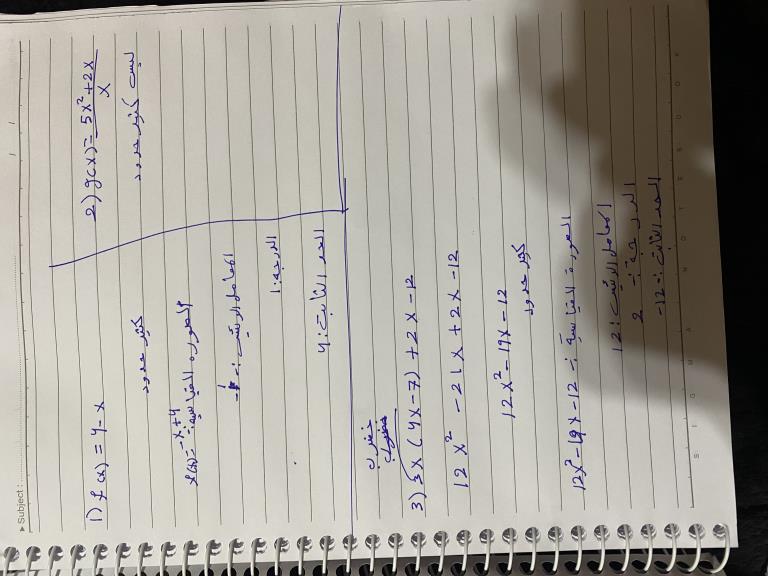 Subject :
1) f(x) = 4 - x
كثير حدود
الصورة القياسية:
f(x) = -x + 4
المعامل الرئيسي: -1
الدرجة: 1
الحد الثابت: 4
2) g(x) = 5x² + 2x / x
ليست كثير حدود
3) 3x (4x - 7) + 2x - 12
12x² - 21x + 2x - 12
12x² - 19x - 12
كثير حدود
الصورة القياسية: 12x² - 19x - 12
المعامل الرئيسي: 12
الدرجة: 2
الحد الثابت: -12